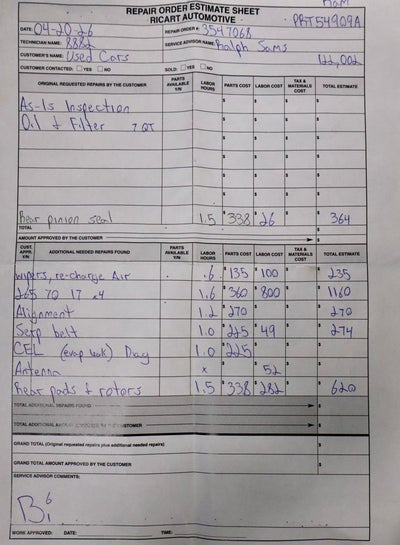 Ram
REPAIR ORDER ESTIMATE SHEET
RICART AUTOMOTIVE
PRT54909A
DATE: 04-20-26 REPAIR ORDER #: 3547068
TECHNICIAN NAME: 8882 SERVICE ADVISOR NAME: Ralph Sams
CUSTOMER'S NAME: Used Cars 122,002
CUSTOMER CONTACTED: YES NO SOLD: YES NO
ORIGINAL REQUESTED REPAIRS BY THE CUSTOMER PARTS AVAILABLE Y/N LABOR HOURS PARTS COST LABOR COST TAX & MATERIALS COST TOTAL ESTIMATE
As-Is Inspection $ $ $ $
Oil & Filter 7 QT $ $ $ $
$ $ $ $
$ $ $ $
$ $ $ $
$ $ $ $
Rear pinion seal 1.5 $ 338 $ 26 $ $ 364
TOTAL $
AMOUNT APPROVED BY THE CUSTOMER $
CUST. APPR. Y/N ADDITIONAL NEEDED REPAIRS FOUND PARTS AVAILABLE Y/N LABOR HOURS PARTS COST LABOR COST TAX & MATERIALS COST TOTAL ESTIMATE
wipers, re-charge Air .6 $ 135 $ 100 $ $ 235
265 70 17 x4 1.6 $ 360 $ 800 $ $ 1160
Alignment 1.2 $ 270 $ $ $ 270
Serp belt 1.0 $ 225 $ 49 $ $ 274
CEL (evap leak) Diag 1.0 $ 225 $ $ $
Antenna x $ $ 52 $ $
Rear pads & rotors 1.5 $ 338 $ 282 $ $ 620
TOTAL ADDITIONAL REPAIRS FOUND $
TOTAL ADDITIONAL AMOUNT APPROVED BY THE CUSTOMER $
GRAND TOTAL (Original requested repairs plus additional needed repairs) $
GRAND TOTAL AMOUNT APPROVED BY THE CUSTOMER $
SERVICE ADVISOR COMMENTS:
WORK APPROVED: DATE: TIME: